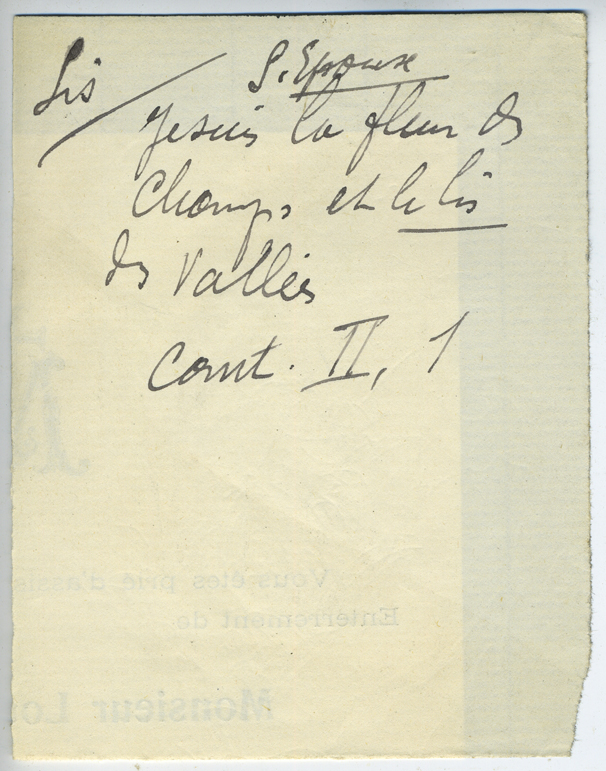 Lis
L'Epouse
Je suis la fleur des
Champs et le lis
des Vallées
Cant. II, 1
Vous êtes prié d'assis
Enterrement de
Monsieur Lou